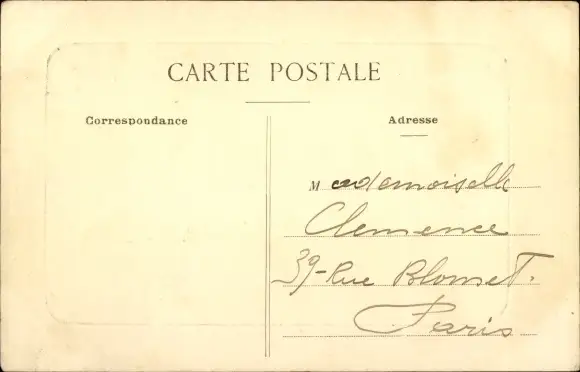 CARTE POSTALE
Correspondance
Adresse
Mademoiselle
Clemence
39-Rue Blomet.
Paris